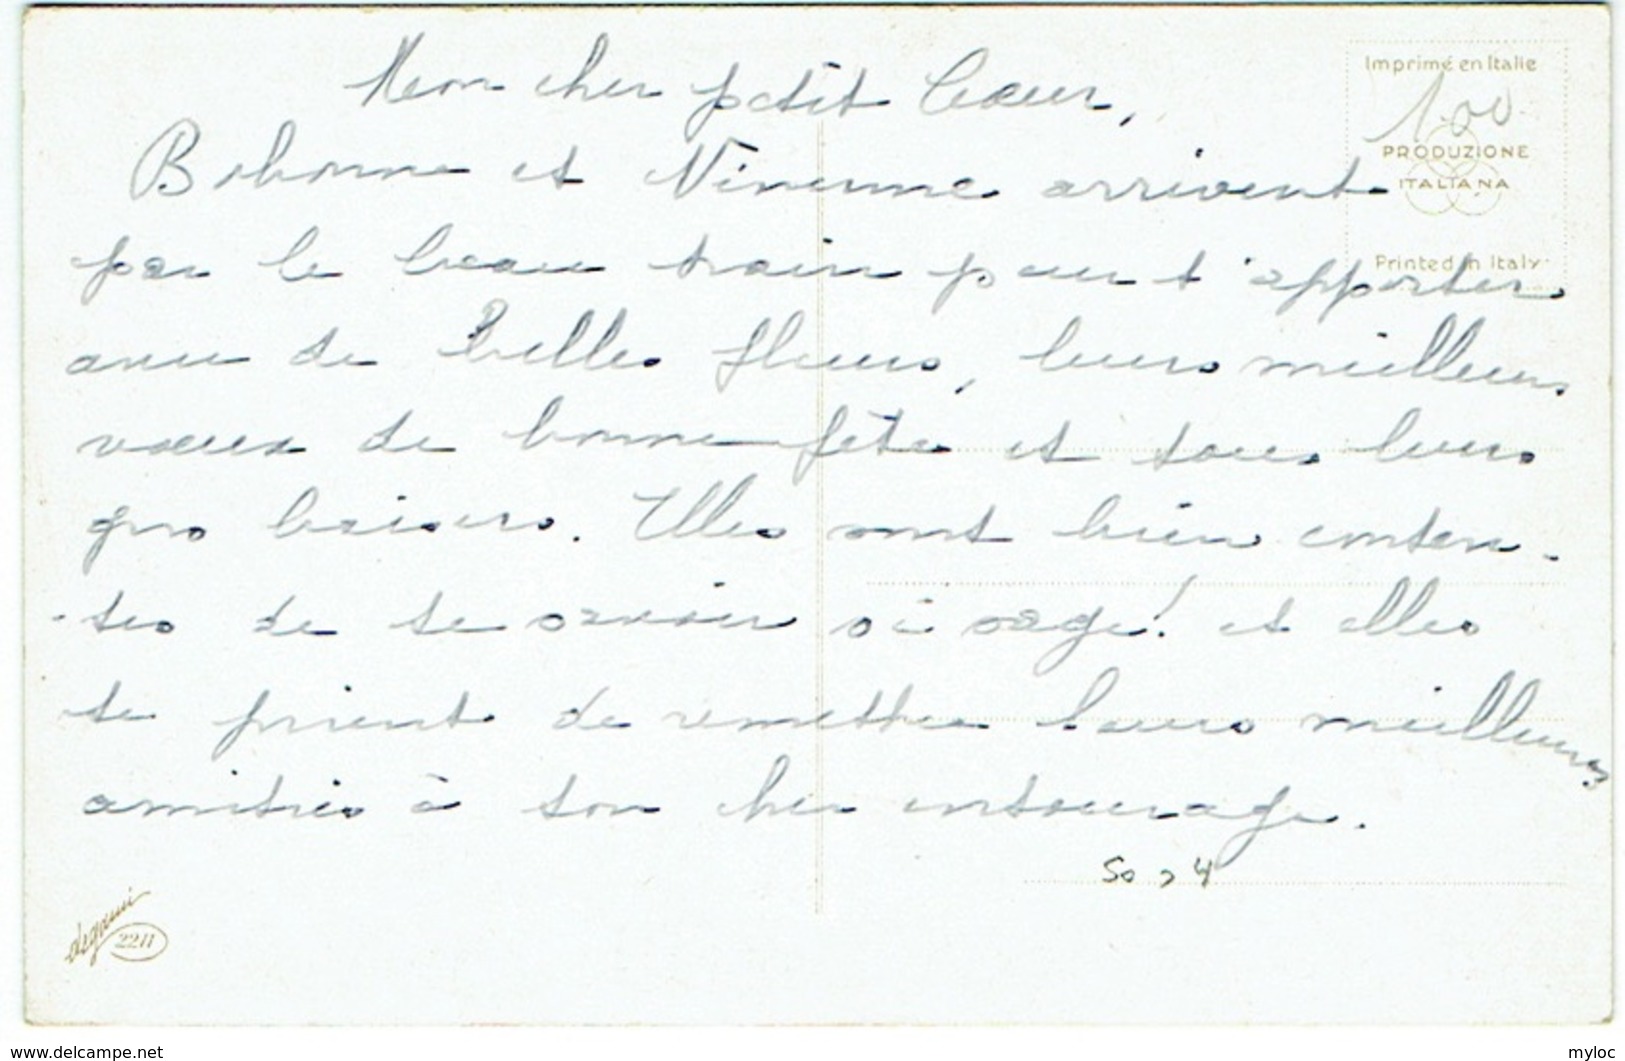 Mon cher petit Coeur,
Bobonne et Nénenne arrivent
par le beau train pour t'apporter
avec de belles fleurs, leurs meilleurs
vœux de bonne fête et tous leurs
gros baisers. Elles sont bien conten-
-tes de te savoir si sage! et elles
te prient de remettre leurs meilleures
amitiés à ton cher entourage.
Imprimé en Italie
1.00
PRODUZIONE
ITALIANA
Printed in Italy
50 > 4
degami
2211
www.delcampe.net
myloc